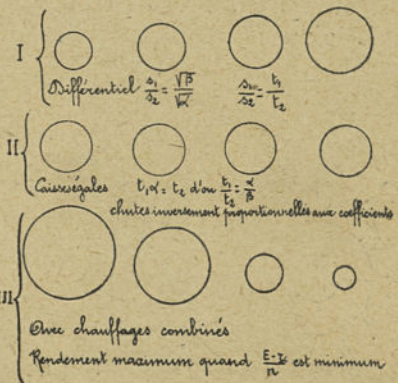 I
Différentiel s₁/s₂ = √β/√α s₁/s₂ = t₁/t₂
II
Caisses égales t₁α = t₂ d'où t₁/t₂ = α/β
chutes inversement proportionnelles aux coefficients
III
Avec chauffages combinés
Rendement maximum quand est minimum